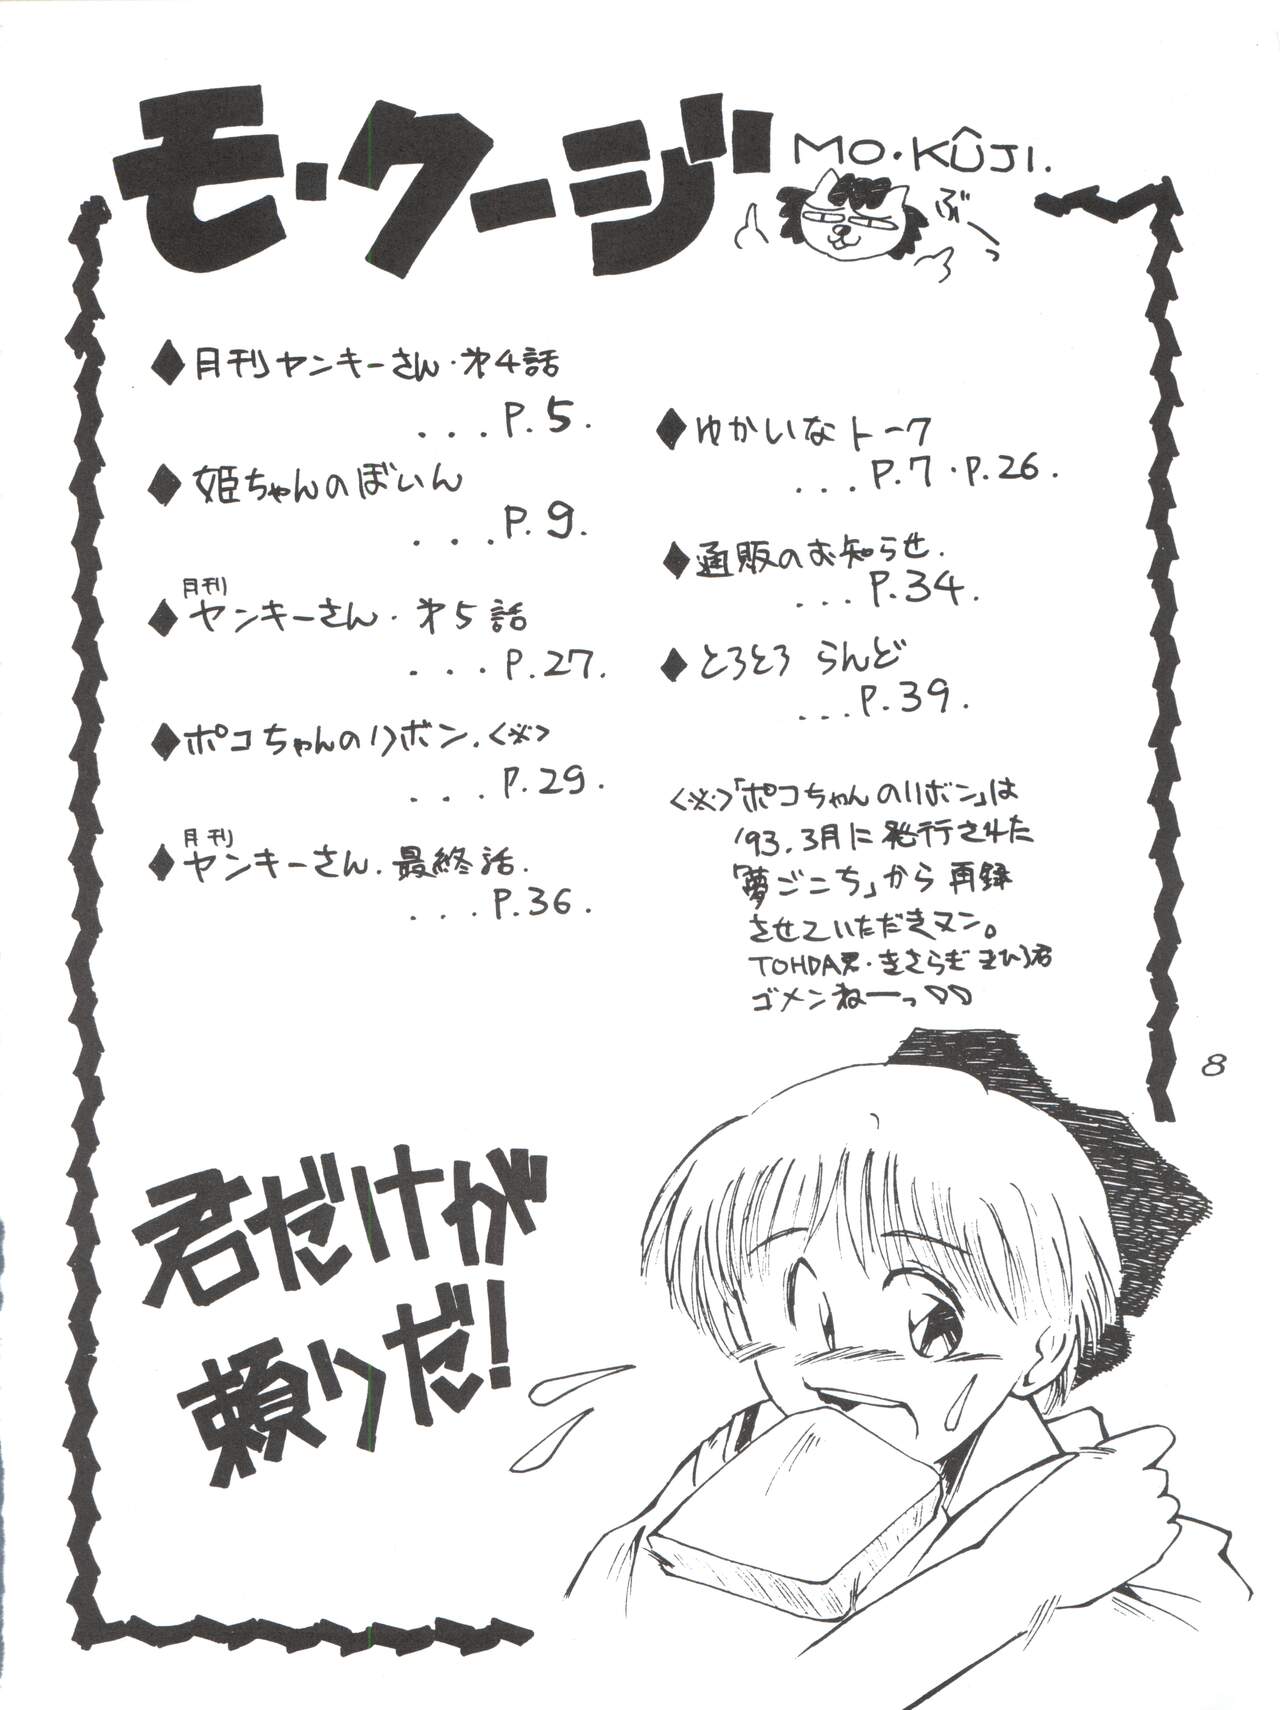 モ・クージ
MO・KÛJI.
ぶーっ
◆月刊ヤンキーさん・第4話
...P.5.
◆姫ちゃんのぼいん
...P.9.
月刊
◆ヤンキーさん・第5話
...P.27.
◆ポコちゃんのリボン.<※>
...P.29.
月刊
◆ヤンキーさん.最終話.
...P.36.
◆ゆかいなトーク
...P.7・P.26.
◆通販のお知らせ.
...P.34.
◆とろとろ らんど
...P.39.
<※>「ポコちゃんのリボン」は
'93.3月に発行された
「夢ごこち」から再録
させていただきマン。
TOHDA君・きさらぎまひる君
ゴメンねーっ♡♡
8
君だけが
頼りだ!